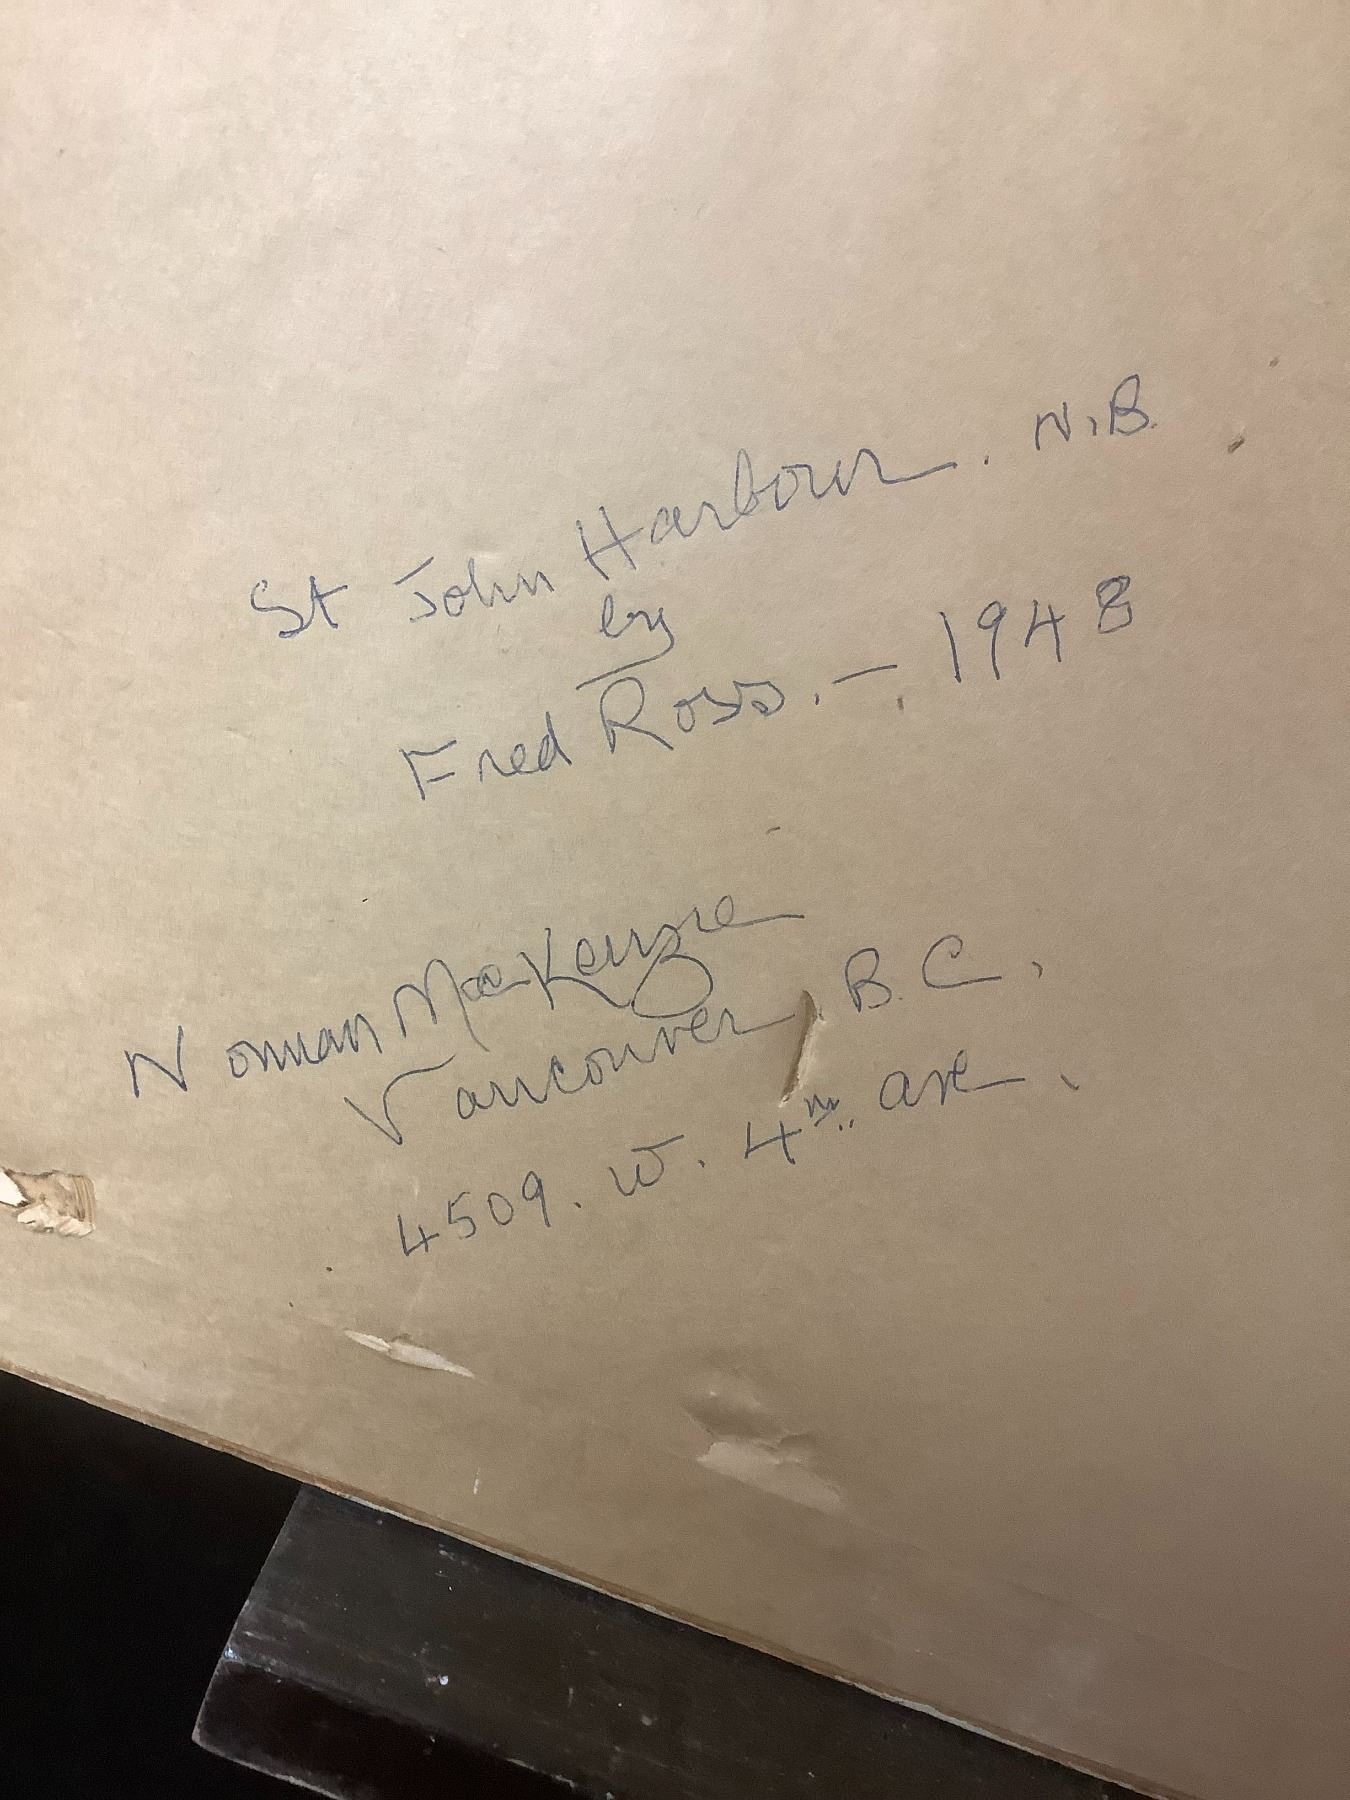 St John Harbour. N.B.
by
Fred Ross. – 1948
Norman MacKenzie
Vancouver, B.C.,
4509. W. 4th. ave.